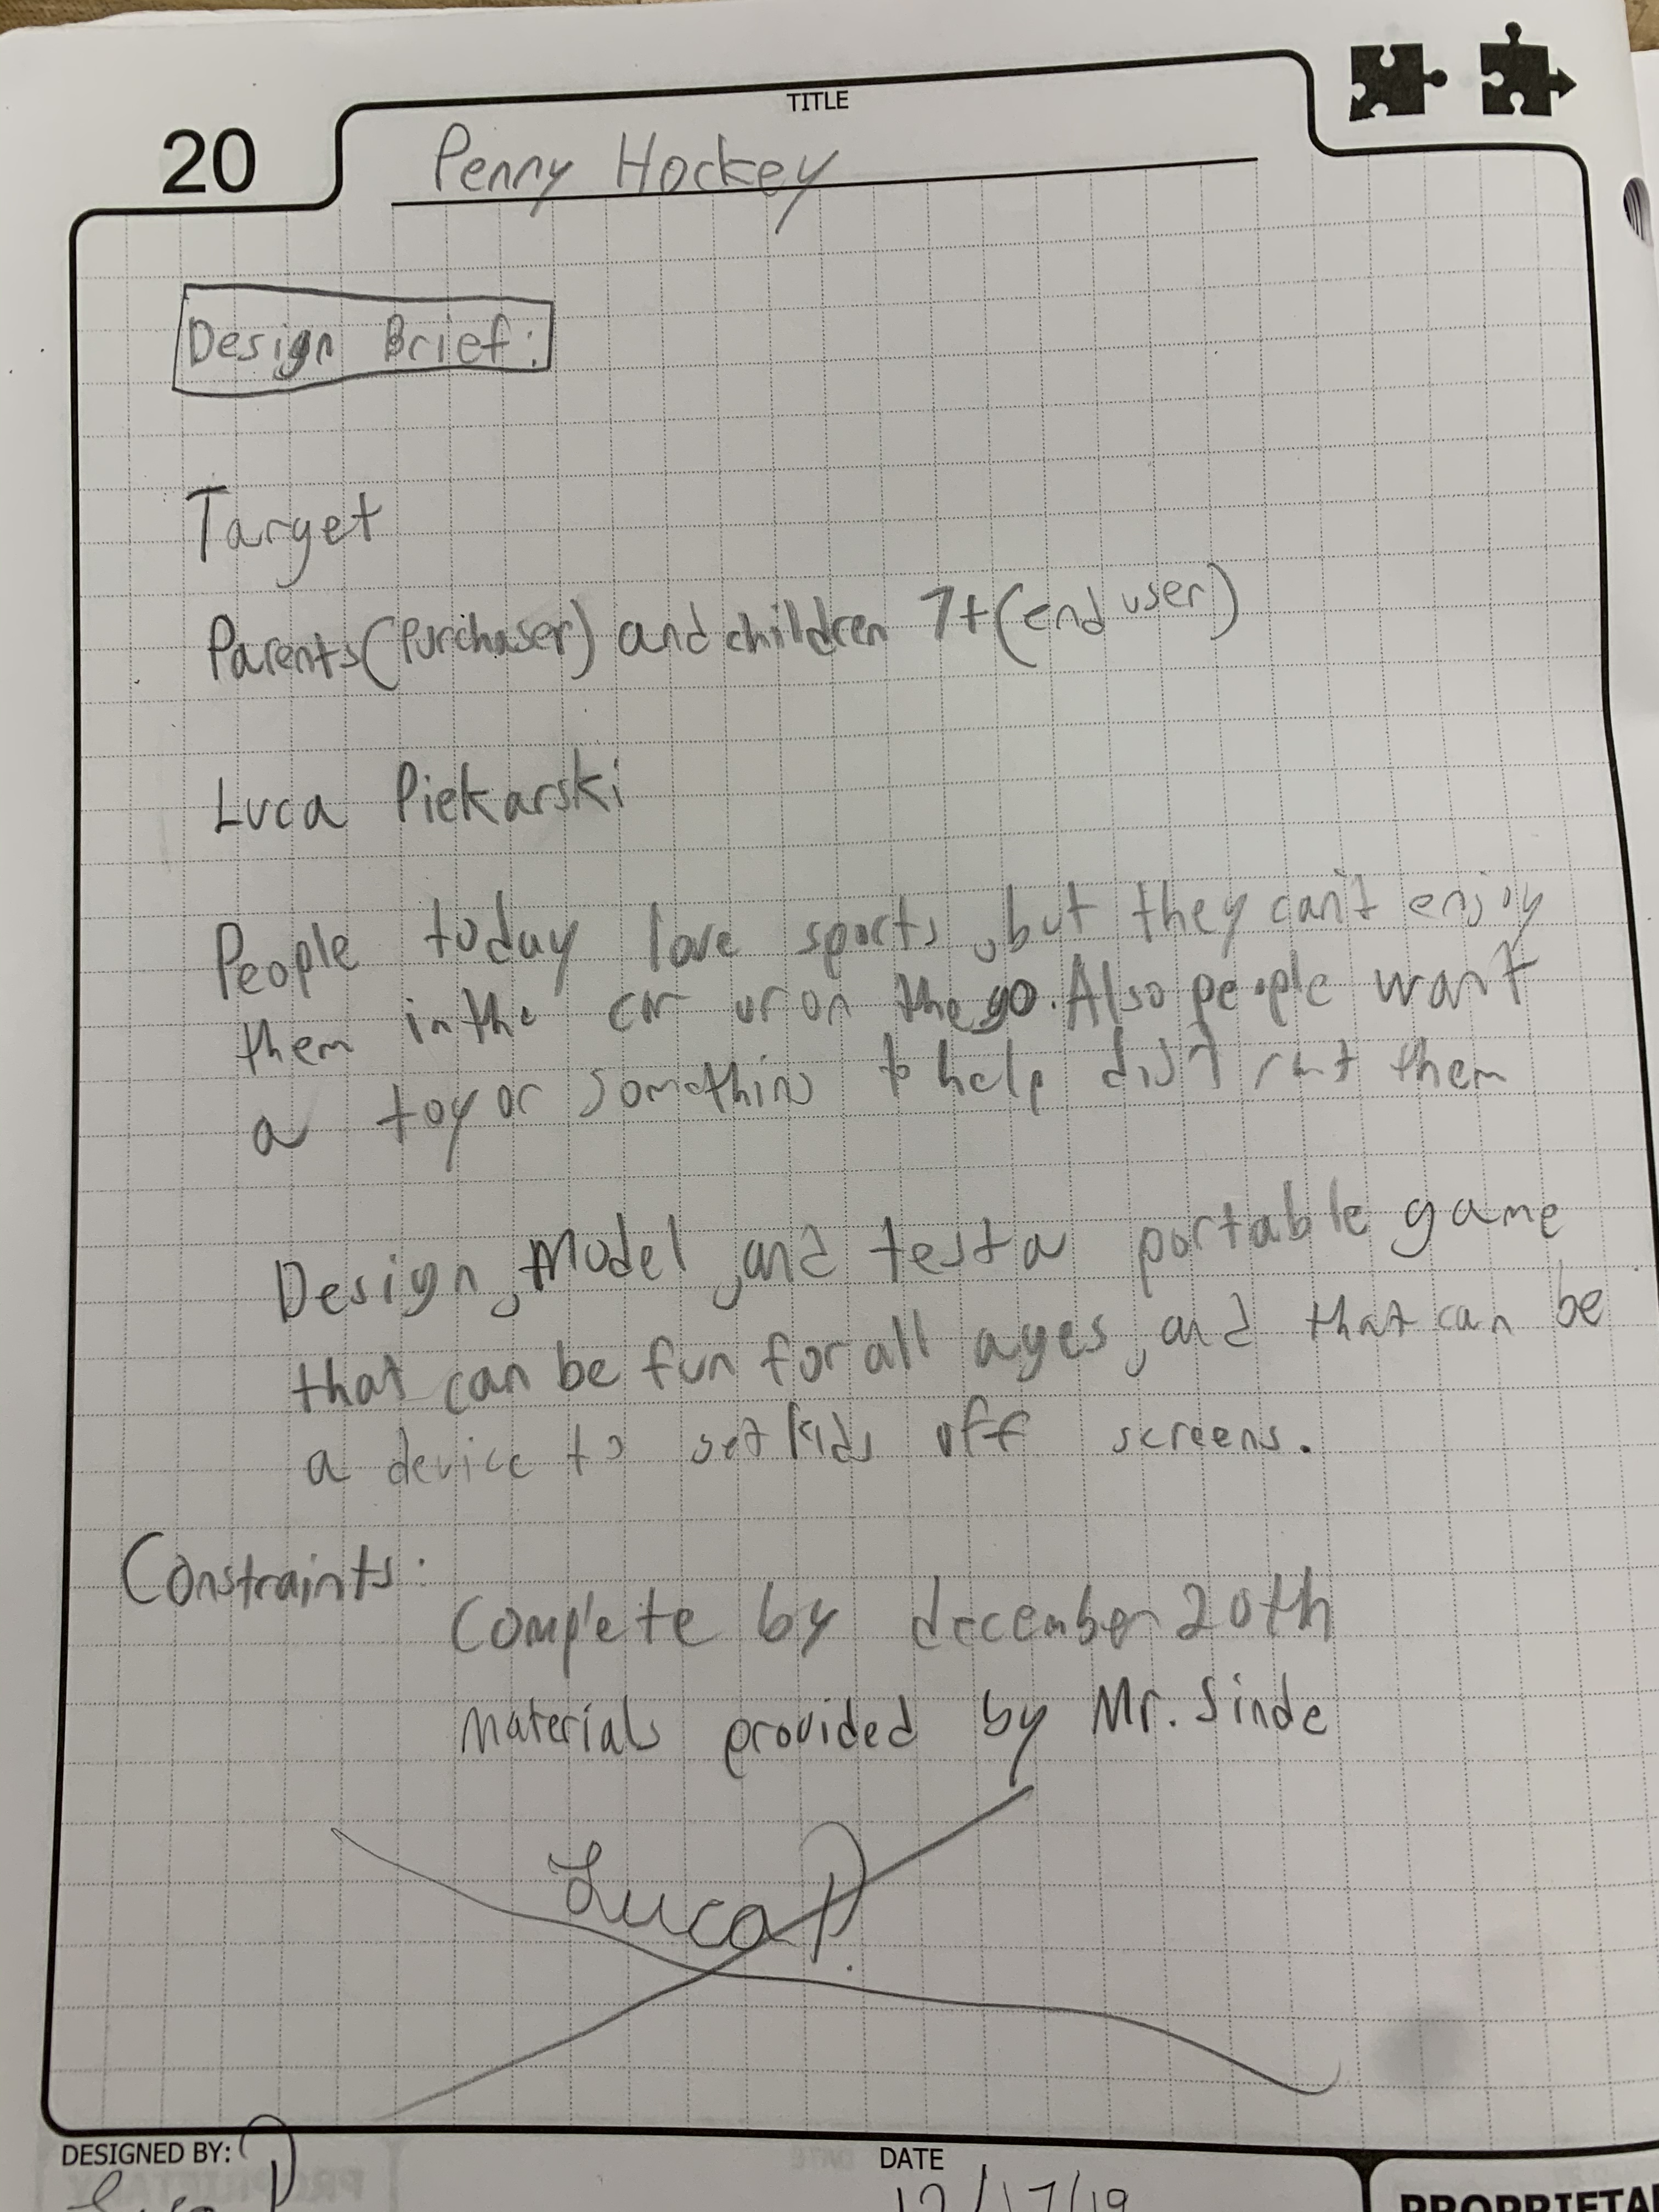 TITLE
20
Penny Hockey
Design Brief:
Target
Parents(Purchaser) and children 7+(end user)
Luca Piekarski
People today love sports, but they can't enjoy
them in the car or on the go. Also people want
a toy or something to help distract them
Design, Model, and test a portable game
that can be fun for all ages, and that can be
a device to get kids off screens.
Constraints:
Complete by december 20th
Materials provided by Mr. Sinde
Luca P.
DESIGNED BY:
DATE
12/17/19